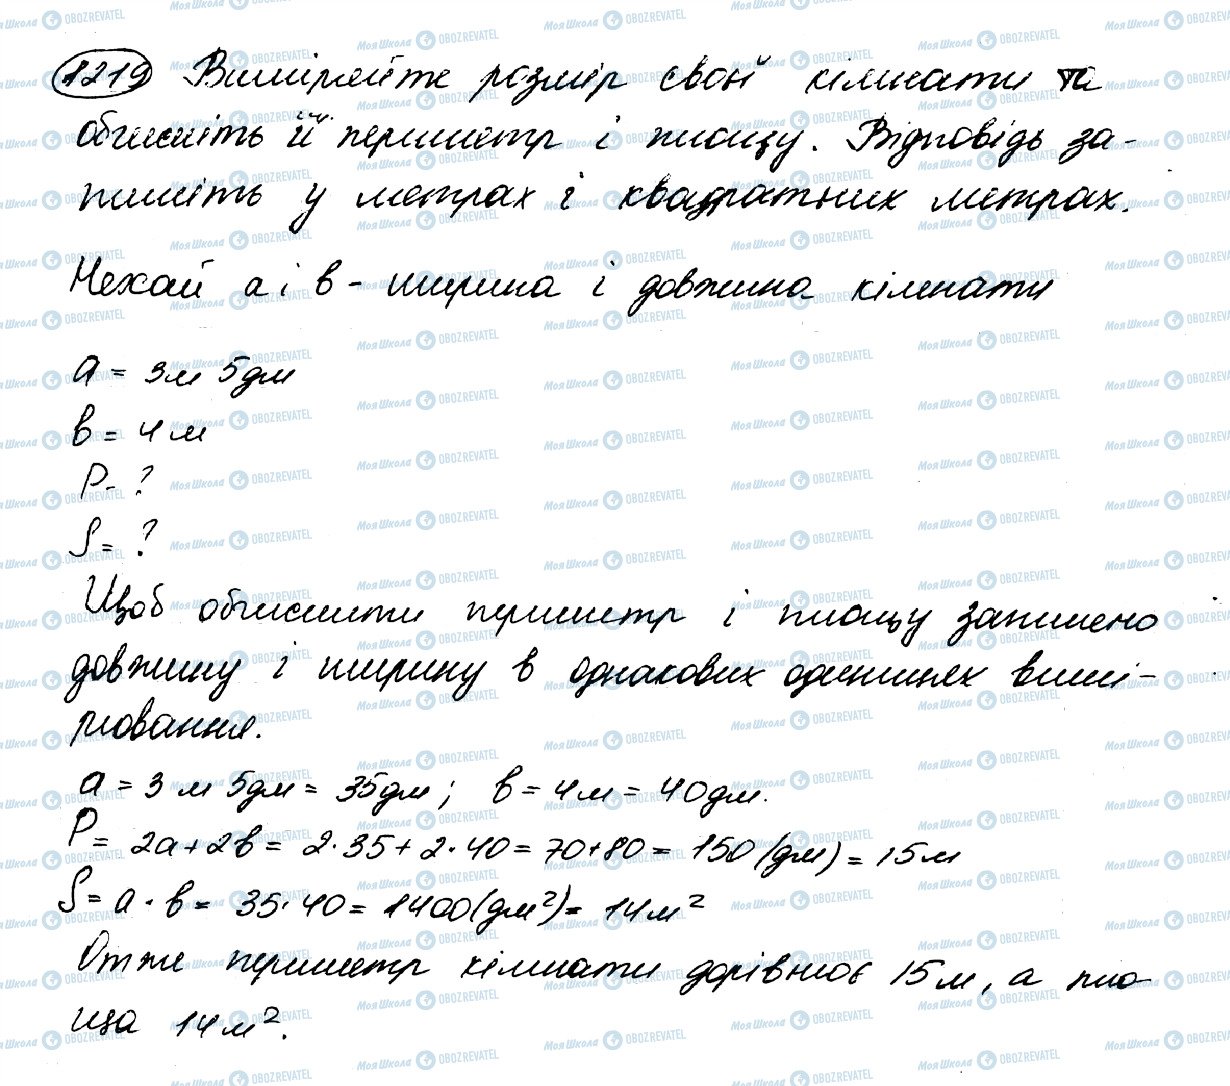 1219 Виміряйте розмір своєї кімнати та
обчисліть її периметр і площу. Відповідь за-
пишіть у метрах і квадратних метрах.
Нехай a і b - ширина і довжина кімнати
a = 3м 5дм
b = 4м
P - ?
S = ?
Щоб обчислити периметр і площу запишемо
довжину і ширину в однакових одиницях вимі-
рювання.
a = 3 м 5дм = 35дм; b = 4м = 40дм.
P = 2a + 2b = 2·35 + 2·40 = 70+80 = 150 (дм) = 15м
S = a · b = 35·40 = 1400 (дм²) = 14м²
Отже периметр кімнати дорівнює 15м, а пло-
ща 14м².
Моя Школа OBOZREVATEL